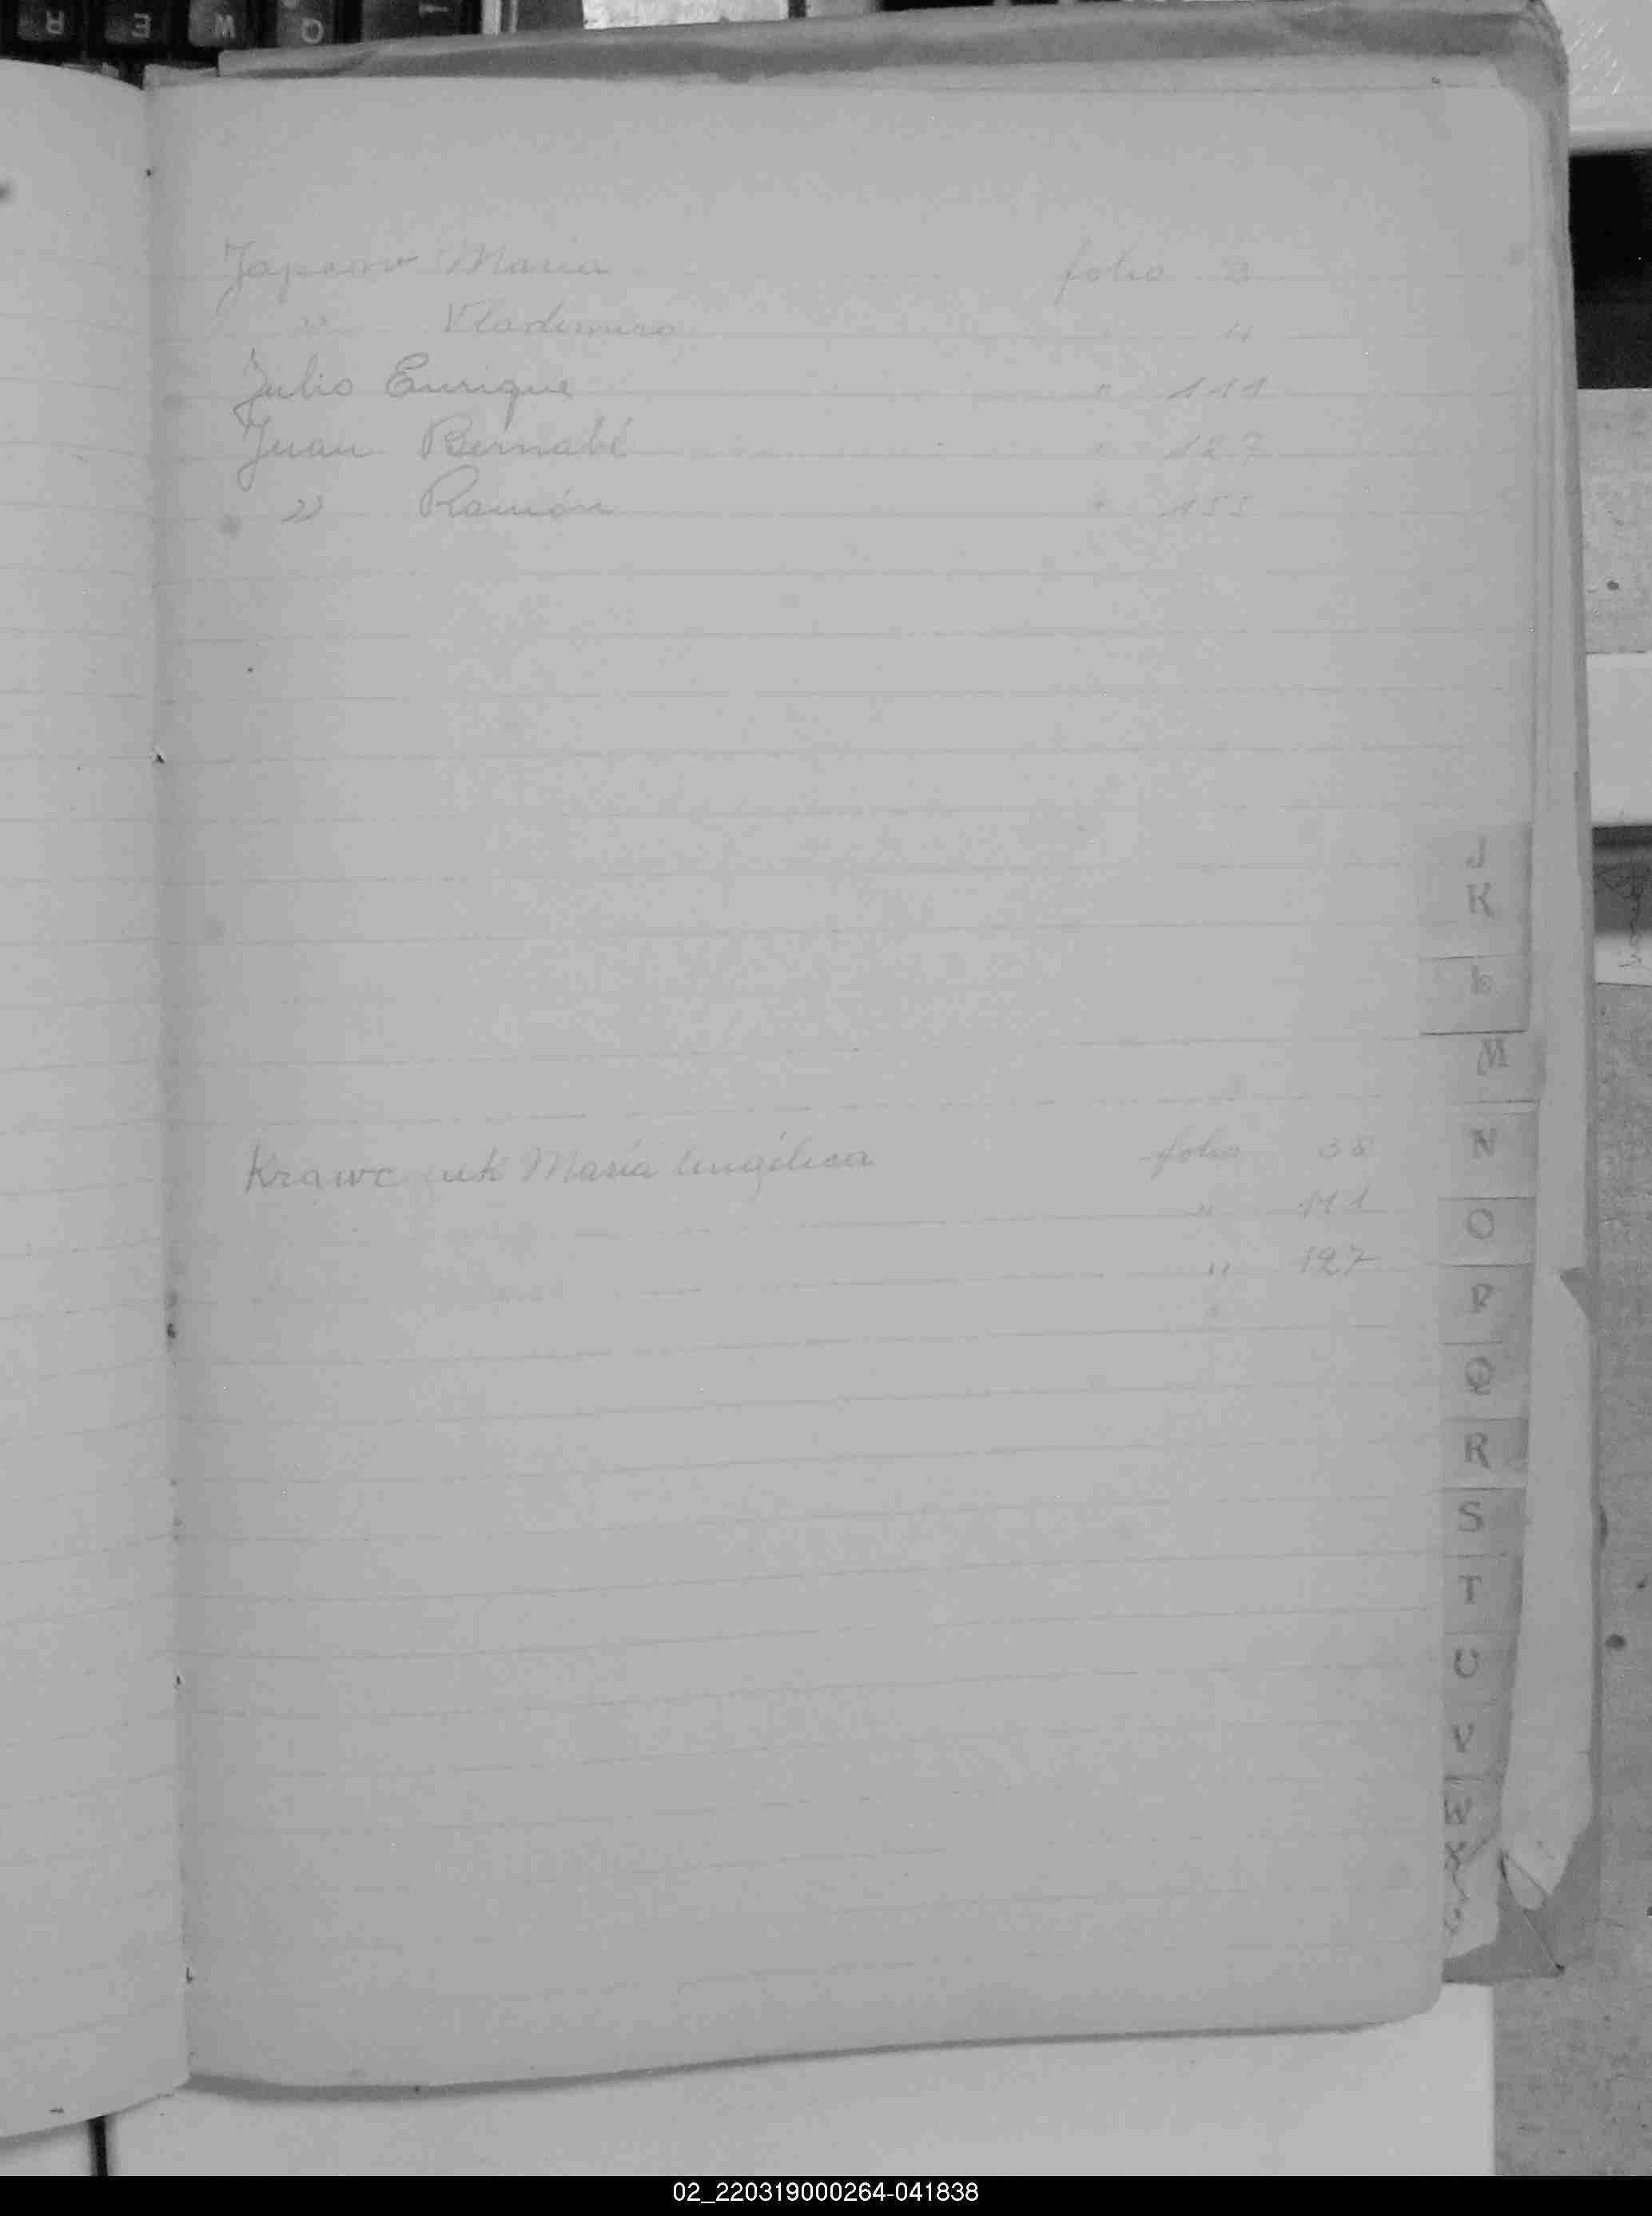 Japcov Maria folio 3
" Vladimiro " 4
Julio Enrique " 111
Juan Bernabé " 127
" Ramón " 155
J
K
L
M
Krawc uk María Angélica folio 38
" 111
" 127
N
O
P
Q
R
S
T
U
V
W
X
02_220319000264-041838